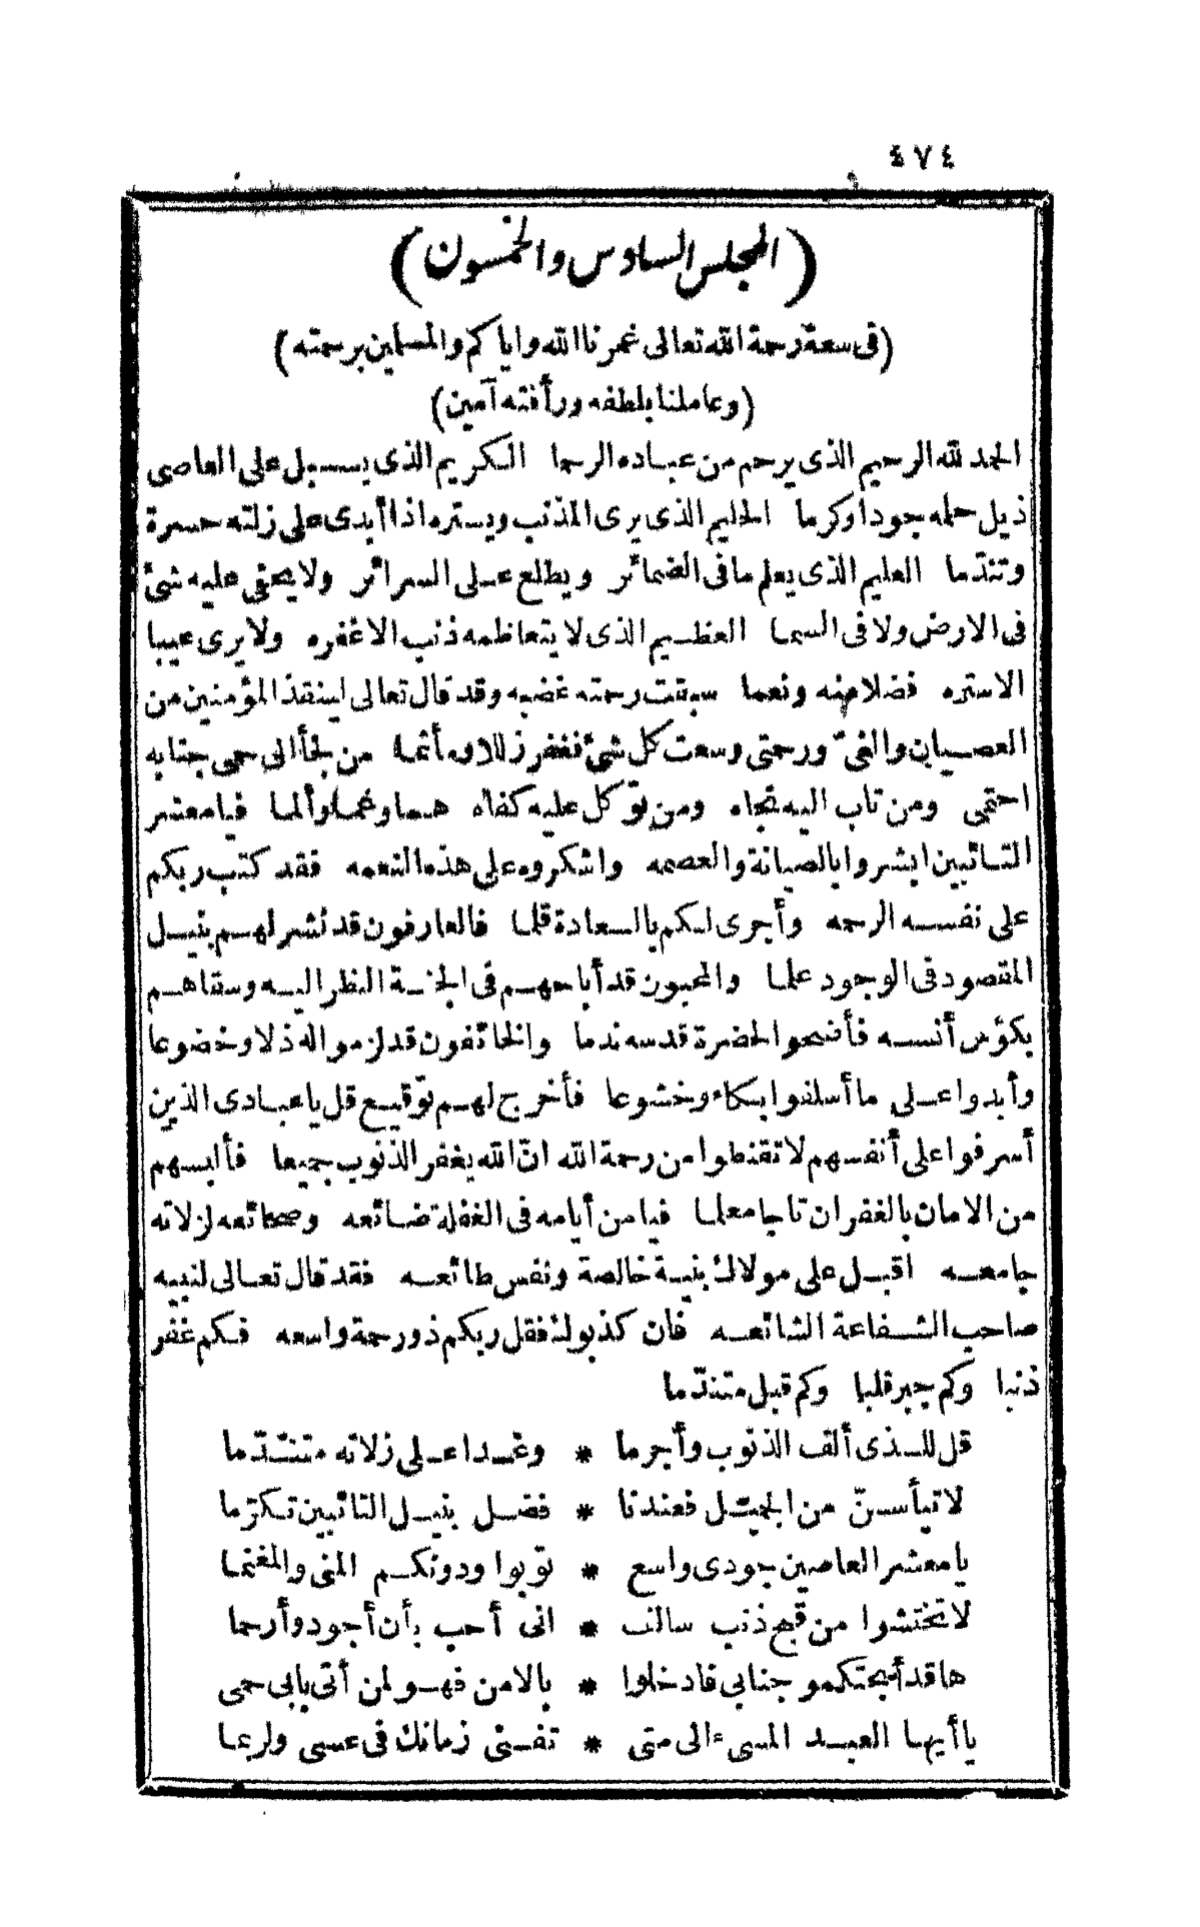 ٤٧٤
(المجلس السادس والخمسون)
(فى سعة رحمة الله تعالى غمرنا الله واياكم والمسلمين برحمته)
(وعاملنا بلطفه ورأفته آمين)
الحمد لله الرحيم الذى يرحم من عباده الرحما الكريم الذى يسبل على العاصى
ذيل حمله جودا وكرما الحليم الذى يرى المذنب ويستره اذا أبدى على زلته حسرة
وتندّما العليم الذى يعلم ما فى الضمائر ويطلع على السرائر ولا يخفى عليه شئ
فى الارض ولا فى السما العظيم الذى لا يتعاظمه ذنب الا غفره ولا يرى عيبا
الا ستره فضلا منه ونعما سبقت رحمته غضبه وقد قال تعالى لينقذ المؤمنين من
العصيان والغىّ ورحمتى وسعت كل شئ فغفر زللا ومأثما من لجأ الى حمى جنابه
احتمى ومن تاب اليه نجاه ومن توّكل عليه كفاه هما وغما وألما فيا معشر
التائبين ابشروا بالصيانة والعصمه واشكروه على هذه النعمه فقد كتب ربكم
على نفسه الرحمه وأجرى لكم بالسعادة قلما فالعارفون قد نشر لهم بنيل
المقصود فى الوجود علما والمحبون قد أباحهم فى الجنة النظر اليه وسقاهم
بكؤس أنسه فأضحوا لحضرة قدسه ندما والخائفون قد لزموا له ذلا وخضوعا
وأبدوا على ما أسلفوا بكاء وخشوعا فأخرج لهم توّقيع قل يا عبادى الذين
أسرفوا على أنفسهم لا تقنطوا من رحمة الله انّ الله يغفر الذنوب جميعا فألبسهم
من الامان بالغفران تاجا معلما فيا من أيامه فى الغفلة ضائعه وصحائفه لزلاته
جامعه اقبل على مولاك بنية خالصة ونفس طائعه فقد قال تعالى لنبيه
صاحب الشفاعة الشائعه فان كذبوك فقل ربكم ذو رحمة واسعه فكم غفر
ذنبا وكم جبر قلبا وكم قبل متندّما
قل للذى ألف الذنوب وأجرما * وغدا على زلاته متندّما
لا تيأسنّ من الجميل فعندنا * فضل ينيل التائبين تكرّما
يا معشر العاصين جودى واسع * توبوا ودونكم المنى والمغنما
لا تختشوا من قبح ذنب سالف * انى أحب بأن أجود وأرحما
ها قد أبحتكمو جنابى فادخلوا * بالامن فهو لمن أتى بابى حمى
يا أيها العبد المسىء الى متى * تفنى زمانك فى عسى ولربما